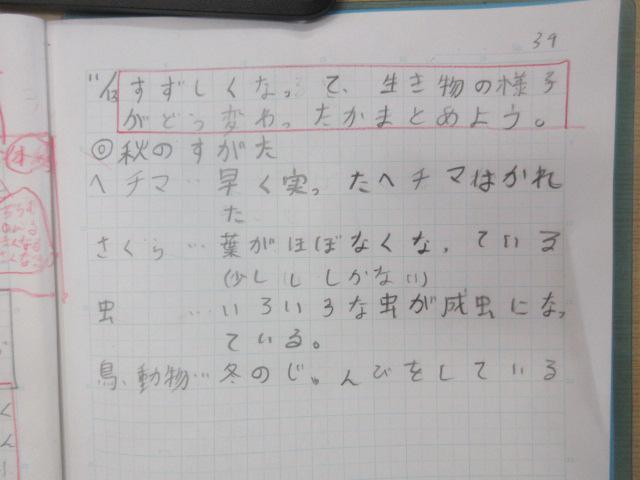 39
11/13 すずしくなって、生き物の様子
がどう変わったかまとめよう。
◎秋のすがた
ヘチマ…早く実ったヘチマはかれ
た
さくら…葉がほぼなくなっている
(少ししかない)
虫 …いろいろな虫が成虫になっ
ている。
鳥、動物…冬のじゅんびをしている